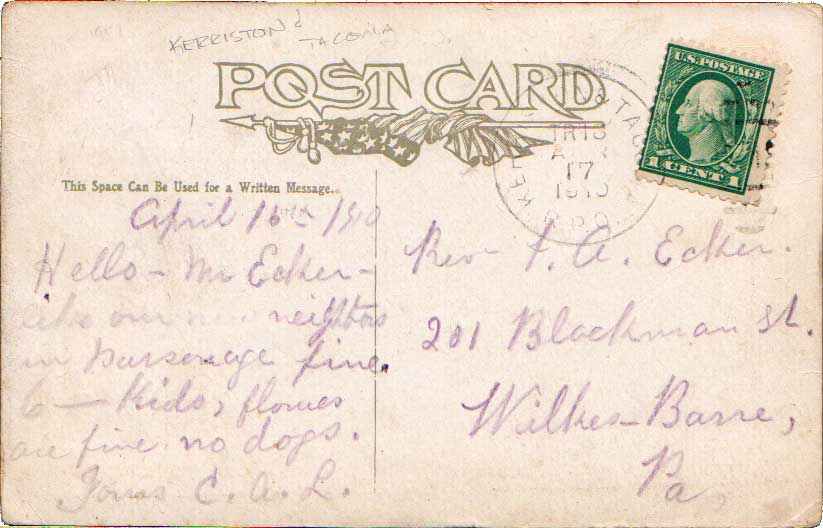 KERRISTON &
TACOMA
POST CARD
U.S. POSTAGE
1 CENT 1
TR18
APR
17
1910
R.P.O.
This Space Can Be Used for a Written Message.
April 16 - 1910
Hello - Mr Ecker -
like our new neighbors
in parsonage fine.
6 - Kids, flowes
are fine no dogs.
Yours C. A. L.
Rev - F. A. Ecker.
201 Blackman St.
Wilkes-Barre,
Pa,